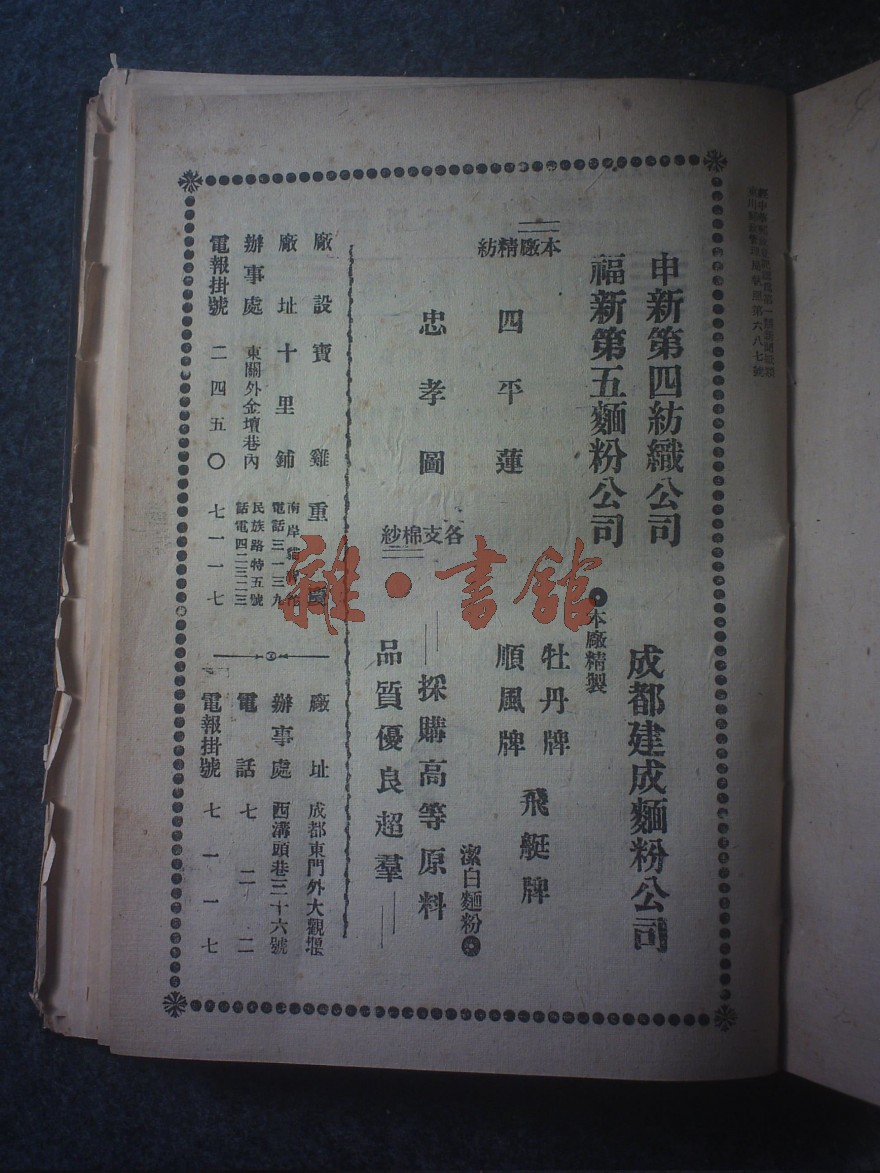 申新第四紡織公司
福新第五麵粉公司
成都建成麵粉公司
本廠精紡
四平蓮
忠孝圖
各支棉紗
本廠精製
牡丹牌
順風牌
飛艇牌
潔白麵粉
採購高等原料
品質優良超羣
廠設寶雞重
廠址十里鋪 南岸
電話三一三九
辦事處 東關外金壩巷內 民族路特五號
電話四二三二三
電報掛號 二四五〇 七一一七
廠址 成都東門外大觀堰
辦事處 西溝頭巷三十六號
電話 七二二
電報掛號 七一一七
第六八七號
雜·書館